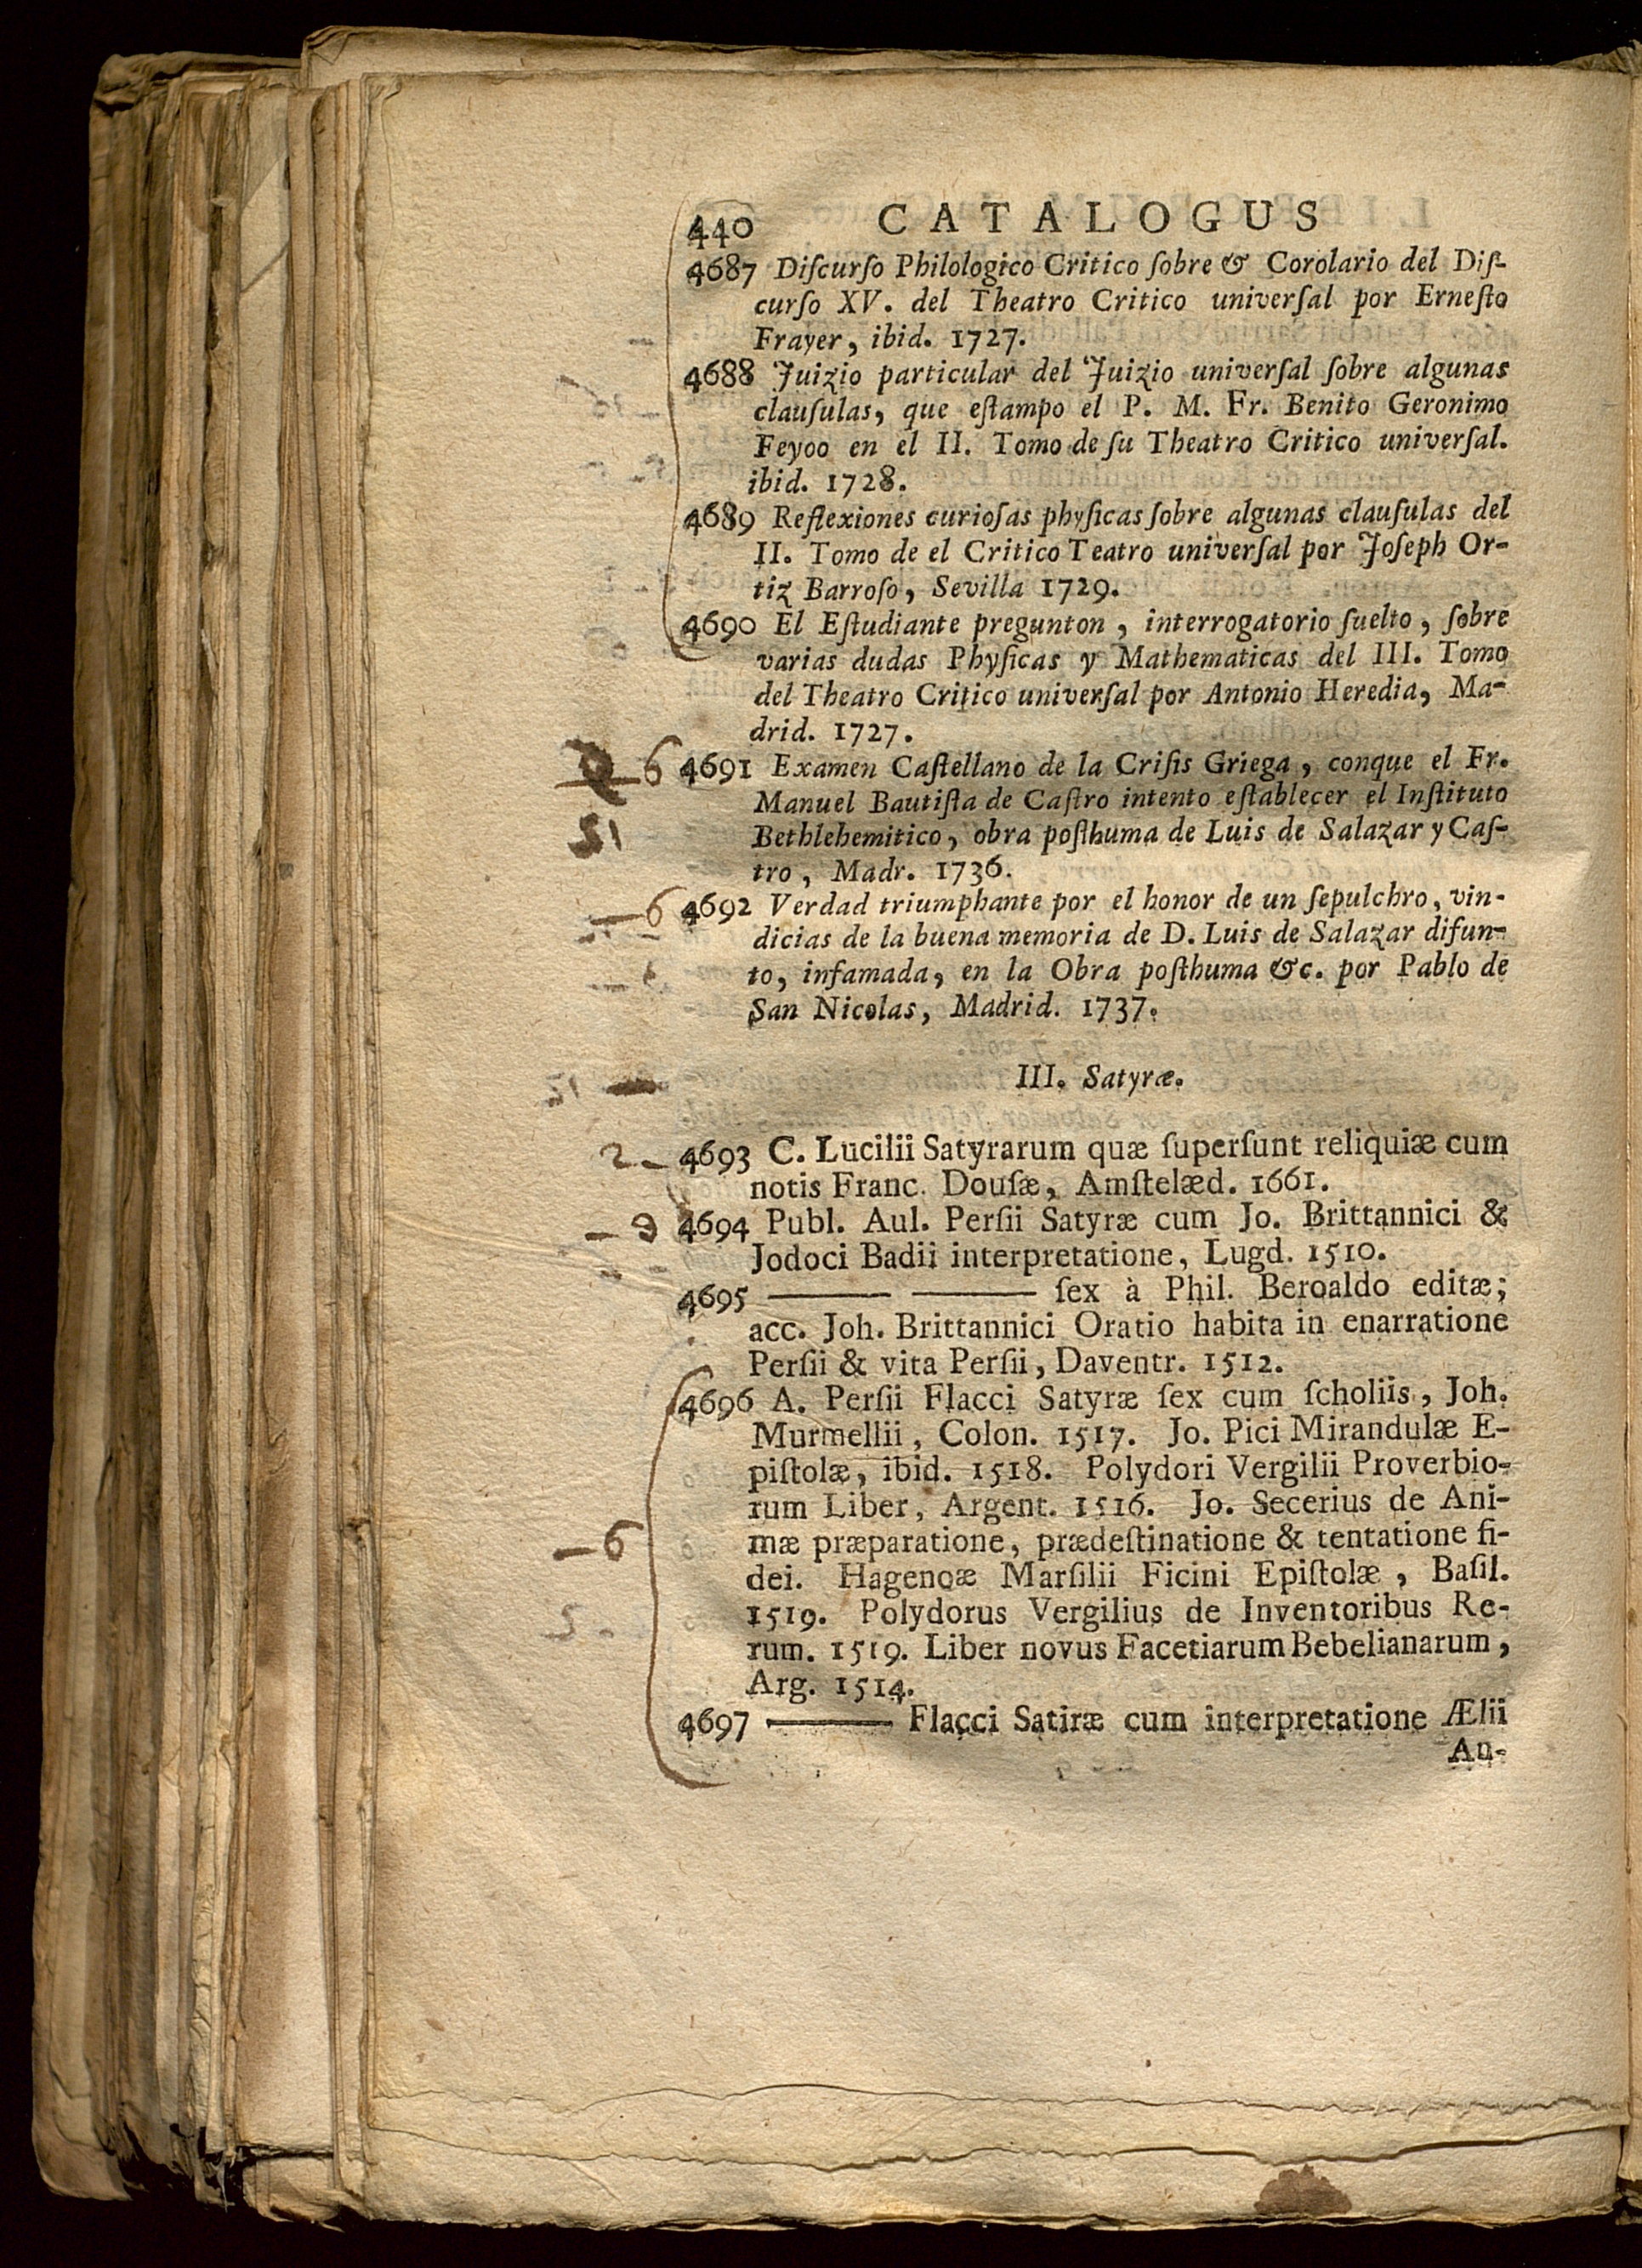 440 CATALOGUS
4687 Diſcurſo Philologico Critico ſobre & Corolario del Diſ-
curſo XV. del Theatro Critico univerſal por Erneſto
Frayer, ibid. 1727.
4688 Juizio particular del Juizio univerſal ſobre algunas
clauſulas, que eſtampo el P. M. Fr. Benito Geronimo
Feyoo en el II. Tomo de ſu Theatro Critico univerſal.
ibid. 1728.
4689 Reflexiones curioſas phyſicas ſobre algunas clauſulas del
II. Tomo de el Critico Teatro univerſal por Joſeph Or-
tiz Barroſo, Sevilla 1729.
4690 El Eſtudiante pregunton, interrogatorio ſuelto, ſobre
varias dudas Phyſicas y Mathematicas del III. Tomo
del Theatro Critico univerſal por Antonio Heredia, Ma-
drid. 1727.
— 6 4691 Examen Caſtellano de la Criſis Griega, conque el Fr.
Manuel Bautiſta de Caſtro intento eſtablecer el Inſtituto
Bethlehemitico, obra poſthuma de Luis de Salazar y Caſ-
tro, Madr. 1736.
— 6 4692 Verdad triumphante por el honor de un ſepulchro, vin-
dicias de la buena memoria de D. Luis de Salazar difun-
to, infamada, en la Obra poſthuma &c. por Pablo de
San Nicolas, Madrid. 1737.
III. Satyræ.
2 — 4693 C. Lucilii Satyrarum quæ ſuperſunt reliquiæ cum
notis Franc. Douſæ, Amſtelæd. 1661.
— 9 4694 Publ. Aul. Perſii Satyræ cum Jo. Brittannici &
Jodoci Badii interpretatione, Lugd. 1510.
4695 —— —— ſex à Phil. Beroaldo editæ;
acc. Joh. Brittannici Oratio habita in enarratione
Perſii & vita Perſii, Daventr. 1512.
4696 A. Perſii Flacci Satyræ ſex cum ſcholiis, Joh.
Murmellii, Colon. 1517. Jo. Pici Mirandulæ E-
piſtolæ, ibid. 1518. Polydori Vergilii Proverbio-
rum Liber, Argent. 1516. Jo. Secerius de Ani-
— 6 mæ præparatione, prædeſtinatione & tentatione fi-
dei. Hagenoæ Marſilii Ficini Epiſtolæ, Baſil.
1519. Polydorus Vergilius de Inventoribus Re-
rum. 1519. Liber novus Facetiarum Bebelianarum,
Arg. 1514.
4697 —— Flacci Satiræ cum interpretatione Ælii
An-